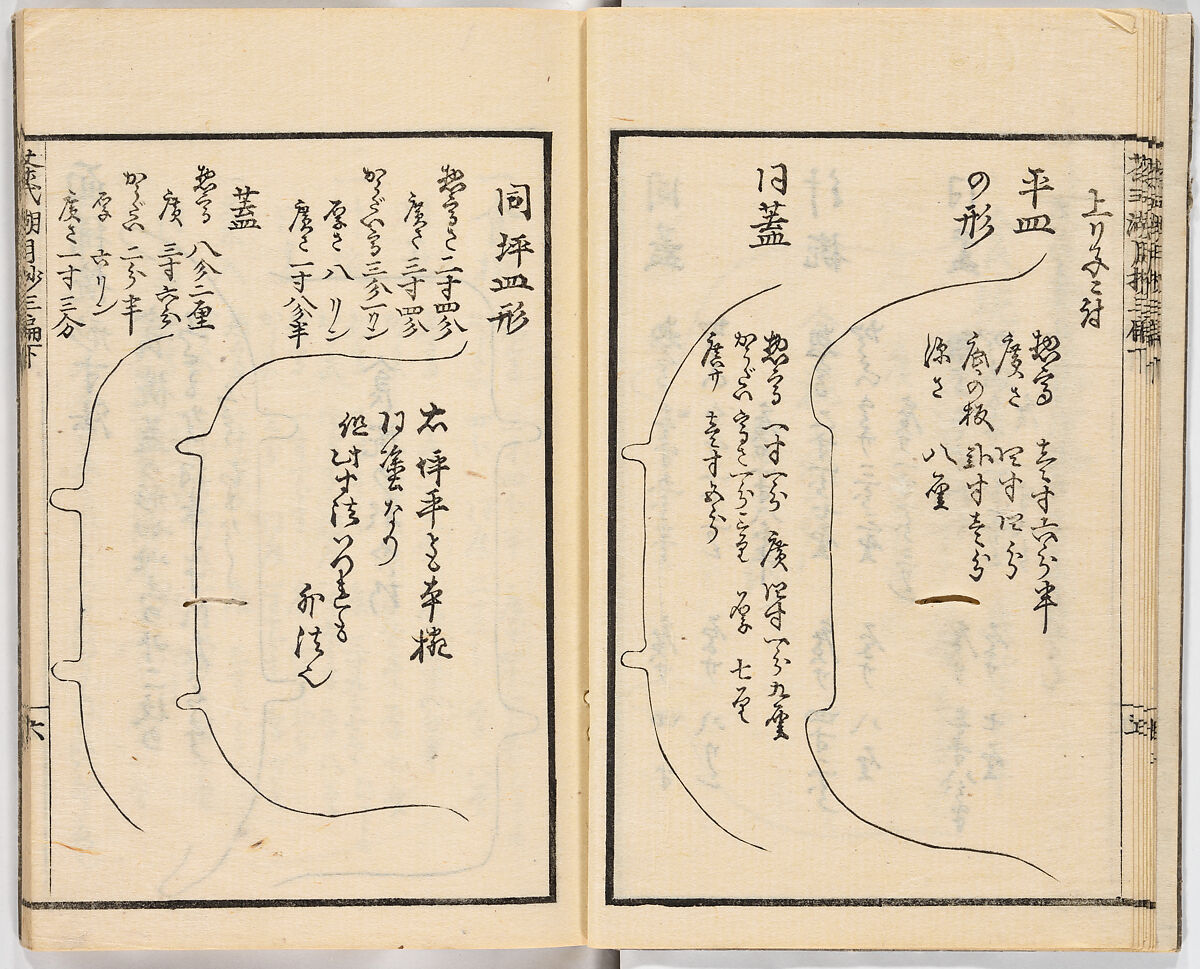 平皿
の形
惣高 壱寸六分半
廣さ 四寸四分
底の板 釻寸壱分
深さ 八厘
同蓋
惣高 一寸一分 廣 四寸一分九厘
高さ一分 厚 七厘
廣サ 壱寸五分
同坪皿形
惣高さ二寸四分
廣さ三寸四分
高三分一リン
厚さ八リン
廣さ一寸八分半
蓋
惣高 八分二厘
廣 三寸六分
二分半
厚 六リン
廣さ一寸三分
右坪平とも本椀
同塗なり
但此寸法いづれも
外法也
湖月抄三編下
六